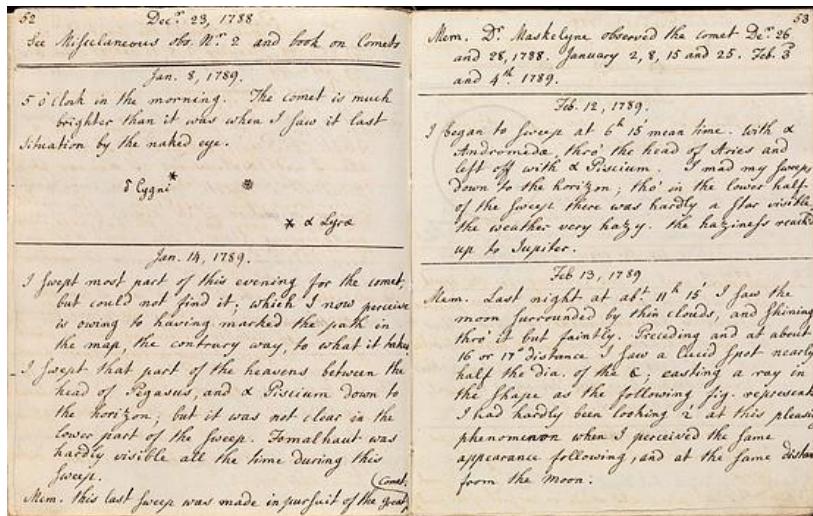 52
Decr. 23, 1788
See Miscelaneous obs. Nr. 2 and book on Comets
Jan. 8, 1789.
5 o'Clock in the morning. The comet is much
brighter than it was when I saw it last
Situation by the naked eye.
δ Cygni
α Lyræ
Jan. 14, 1789.
I swept most part of this evening for the comet,
but could not find it; which I now perceive
is owing to having marked the path in
the map, the contrary way, to what it takes
I swept that part of the heavens between the
head of Pegasus, and α Piscium down to
the horizon; but it was not clear in the
lower part of the sweep. Fomalhaut was
hardly visible all the time during this
sweep.
Mem. this last sweep was made in pursuit of the great
Comet.
53
Mem. Dr. Maskelyne observed the comet Der. 26
and 28, 1788. January 2, 8, 15 and 25. Feb. 3
and 4th. 1789.
Feb. 12, 1789.
I began to sweep at 6h 15' mean time. with α
Andromedæ, thro' the head of Aries and
left off with α Piscium. I mad my sweeps
down to the horizon; tho' in the lower half
of the sweep there was hardly a star visible,
the weather very hazy. the haziness reach'd
up to Jupiter.
Feb 13, 1789
Mem. Last night at abt. 11h 15' I saw the
moon surrounded by thin clouds, and shining
thro' it but faintly. Preceding and at about
16 or 17° distance I saw a lucid spot nearly
half the dia. of the ☾; casting a ray in
the shape as the following fig. represents
I had hardly been looking 2' at this pleasi
phenomenon when I perceived the same
appearance following, and at the same distan
from the moon.